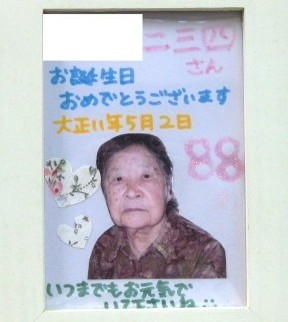 二三四
さん
お誕生日
おめでとうございます
大正11年5月2日
88
いつまでもお元気で
いて下さいね